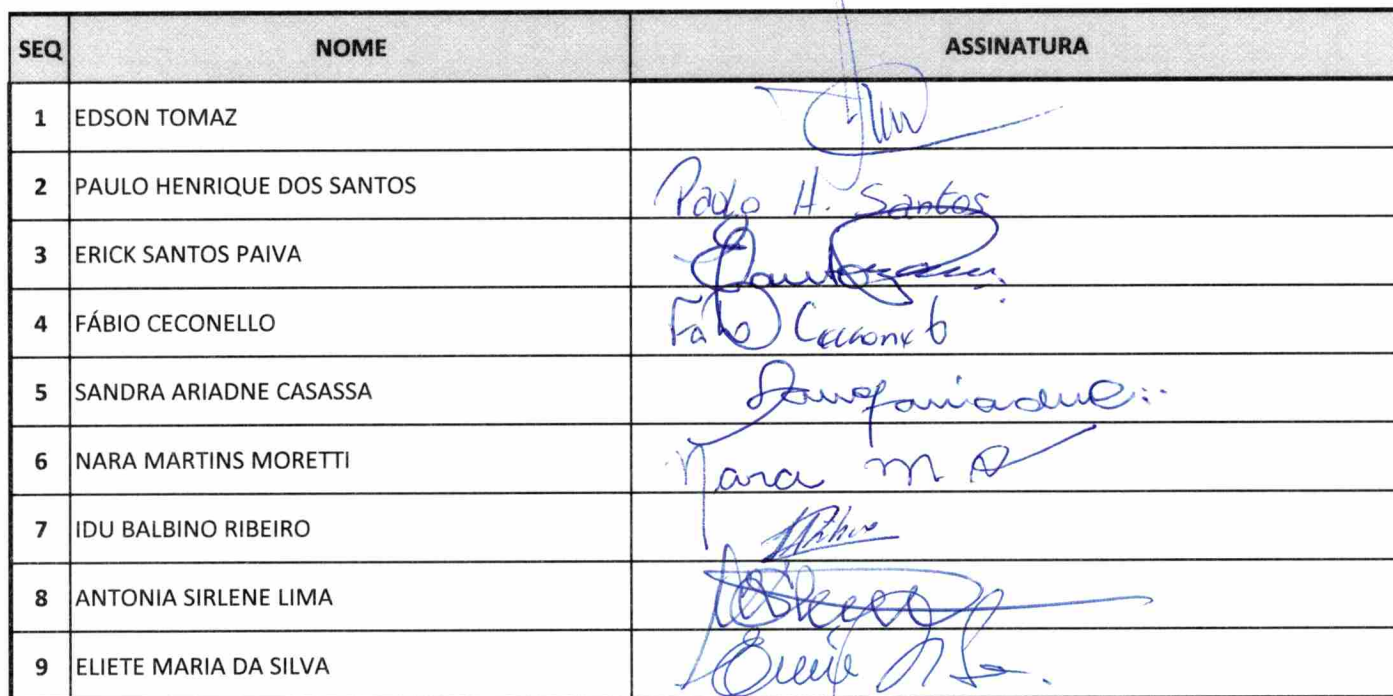 SEQ NOME ASSINATURA
1 EDSON TOMAZ
2 PAULO HENRIQUE DOS SANTOS Paulo H. Santos
3 ERICK SANTOS PAIVA
4 FÁBIO CECONELLO
5 SANDRA ARIADNE CASASSA
6 NARA MARTINS MORETTI Nara M
7 IDU BALBINO RIBEIRO
8 ANTONIA SIRLENE LIMA
9 ELIETE MARIA DA SILVA